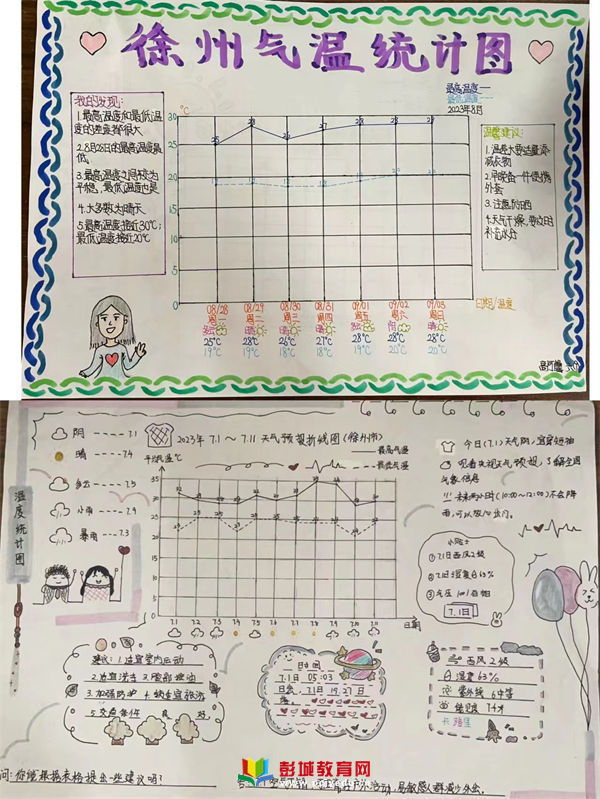 徐州气温统计图
最高温度
最低温度
2023年8月
我的发现:
1.最高温度和最低温
度的速度都很大
2.8月28日的最高温度最
低。
3.最高温度之间较为
平稳,最低温度也是
4.大多数为晴天
5.最高温度接近30℃;
最低温度接近20℃
℃
30
25
20
15
10
5
0
25 28 26 27 28 28 28
19 19 18 18 19 20 20
温馨建议:
1.温差大要适量添
减衣物
2.早晚备一件便携
外套
3.注意防晒
4.天气干燥,要及时
补充水分
08/28 08/29 08/30 08/31 09/01 09/02 09/03
周一 周二 周三 周四 周五 周六 周日
日期/温度
25℃ 28℃ 26℃ 27℃ 28℃ 28℃ 28℃
19℃ 19℃ 18℃ 18℃ 19℃ 20℃ 20℃
温度统计图
阴 ---- 7.1
晴 ---- 7.4
多云 ---- 7.5
小雨 ---- 7.9
暴雨 ---- 7.3
2023年 7.1～7.11 天气预报折线图(徐州市)
平均气温℃
最高气温
最低气温
35
30
25
20
15
10
5
0
7.1 7.2 7.3 7.4 7.5 7.6 7.7 7.8 7.9 7.10 7.11
日期
今日(7.1)天气阴,宜穿短袖
气象信息
!! 未来两小时(10:00~12:00)不会降
雨,可以放心出门。
小贴士
①7.1日西风2级
②7.1日湿度63%
7.1日
建议: 1.适宜室内运动
3.加强防护
日出图
7.1日 05:03
西风2级
湿度63%
紫外线
能见度
问:你能根据表格提出一些建议吗?
易敏感人群减少外出。
彭城教育网